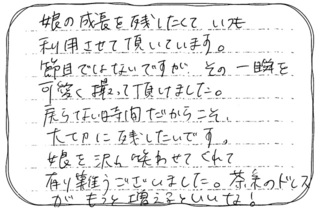 娘の成長を残したくて いつも
利用させて頂いています。
節目ではないですが、その一瞬を
可愛く撮って頂けました。
戻らない時間だからこそ、
大切に残したいです。
娘を沢山笑わせてくれて
有り難うございました。茶系のドレス
がもっと増えるといいな!